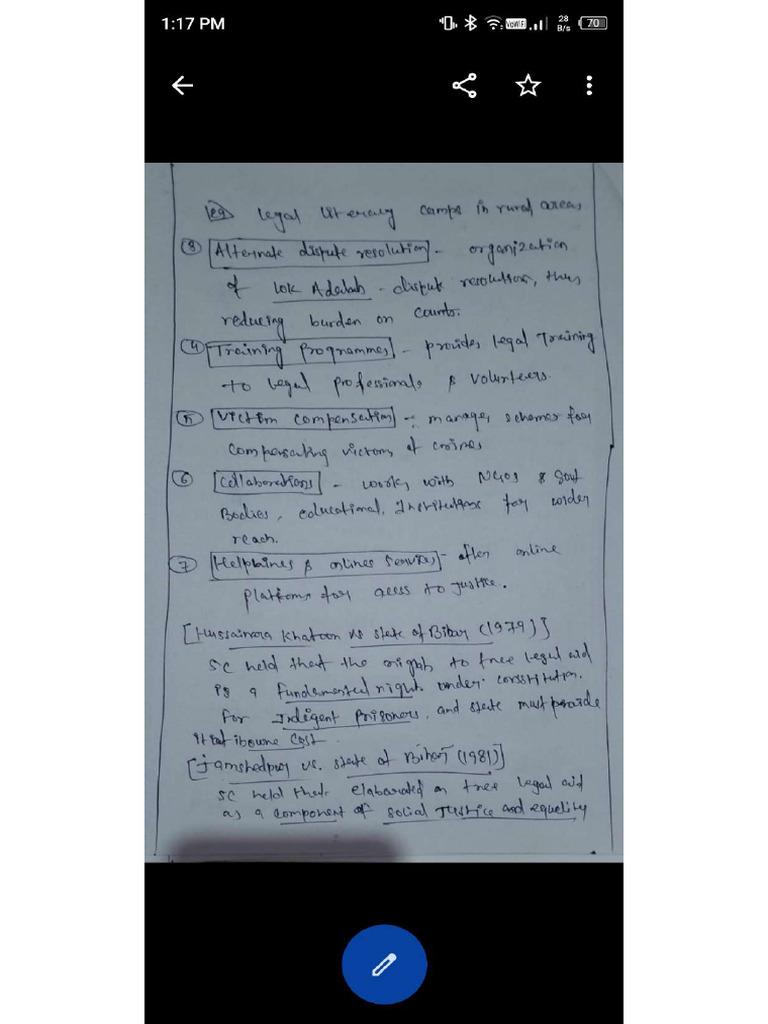 1:17 PM VoWiFi 28 B/s 70
eg legal literacy camps in rural areas
③ Alternate dispute resolution - organization
of lok Adalah - dispute resolution, thus
reducing burden on courts.
④ Training Programmes - provides legal Training
to legal professionals & volunteers.
⑤ Victim compensation - manages schemes for
compensating victims of crimes
⑥ Collaborations - works with NGOs & Govt
Bodies, educational, Institutions for wider
reach.
⑦ Helplines & onlines services - offer online
platforms for acess to justice.
[Hussainora Khatoon vs state of Bihar (1979)]
SC held that the right to free legal aid
is a fundamental right under constitution.
for Indigent Prisoners, and state must provide
it at ibowne cost.
[Jamshedpur vs. state of Bihar (1981)]
SC held that elabarated on free legal aid
as a component of social justice and equelity